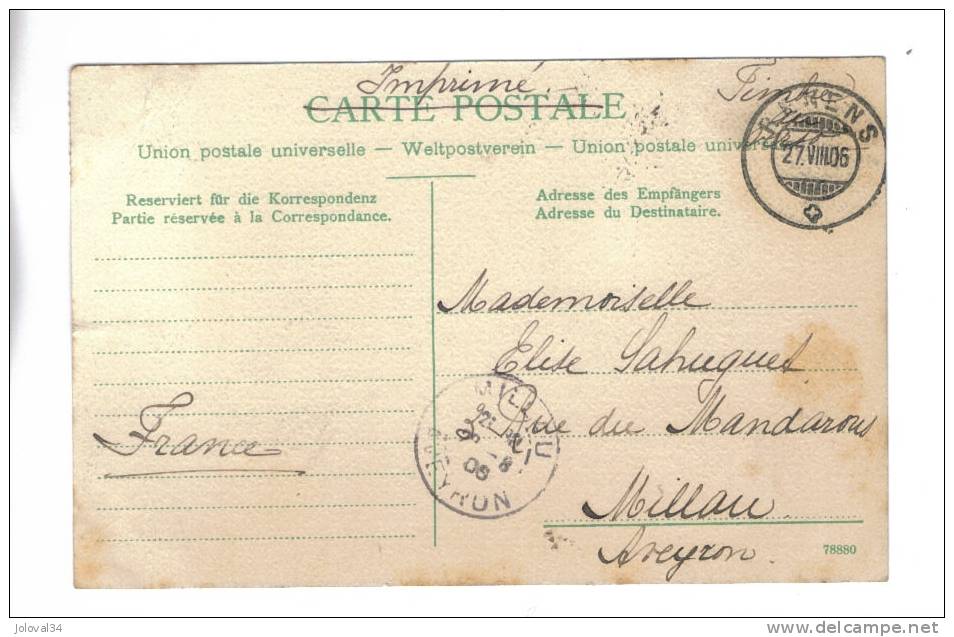 Imprimé.
Timbre
CARTE POSTALE
Union postale universelle — Weltpostverein — Union postale universelle
27.VIII.06
Reserviert für die Korrespondenz
Partie réservée à la Correspondance.
Adresse des Empfängers
Adresse du Destinataire.
Mademoiselle
Elise Sahuquet
rue du Mandarous
France
Millau
Aveyron.
MILLAU
AVEYRON
78880
joloval34
delcampe.net